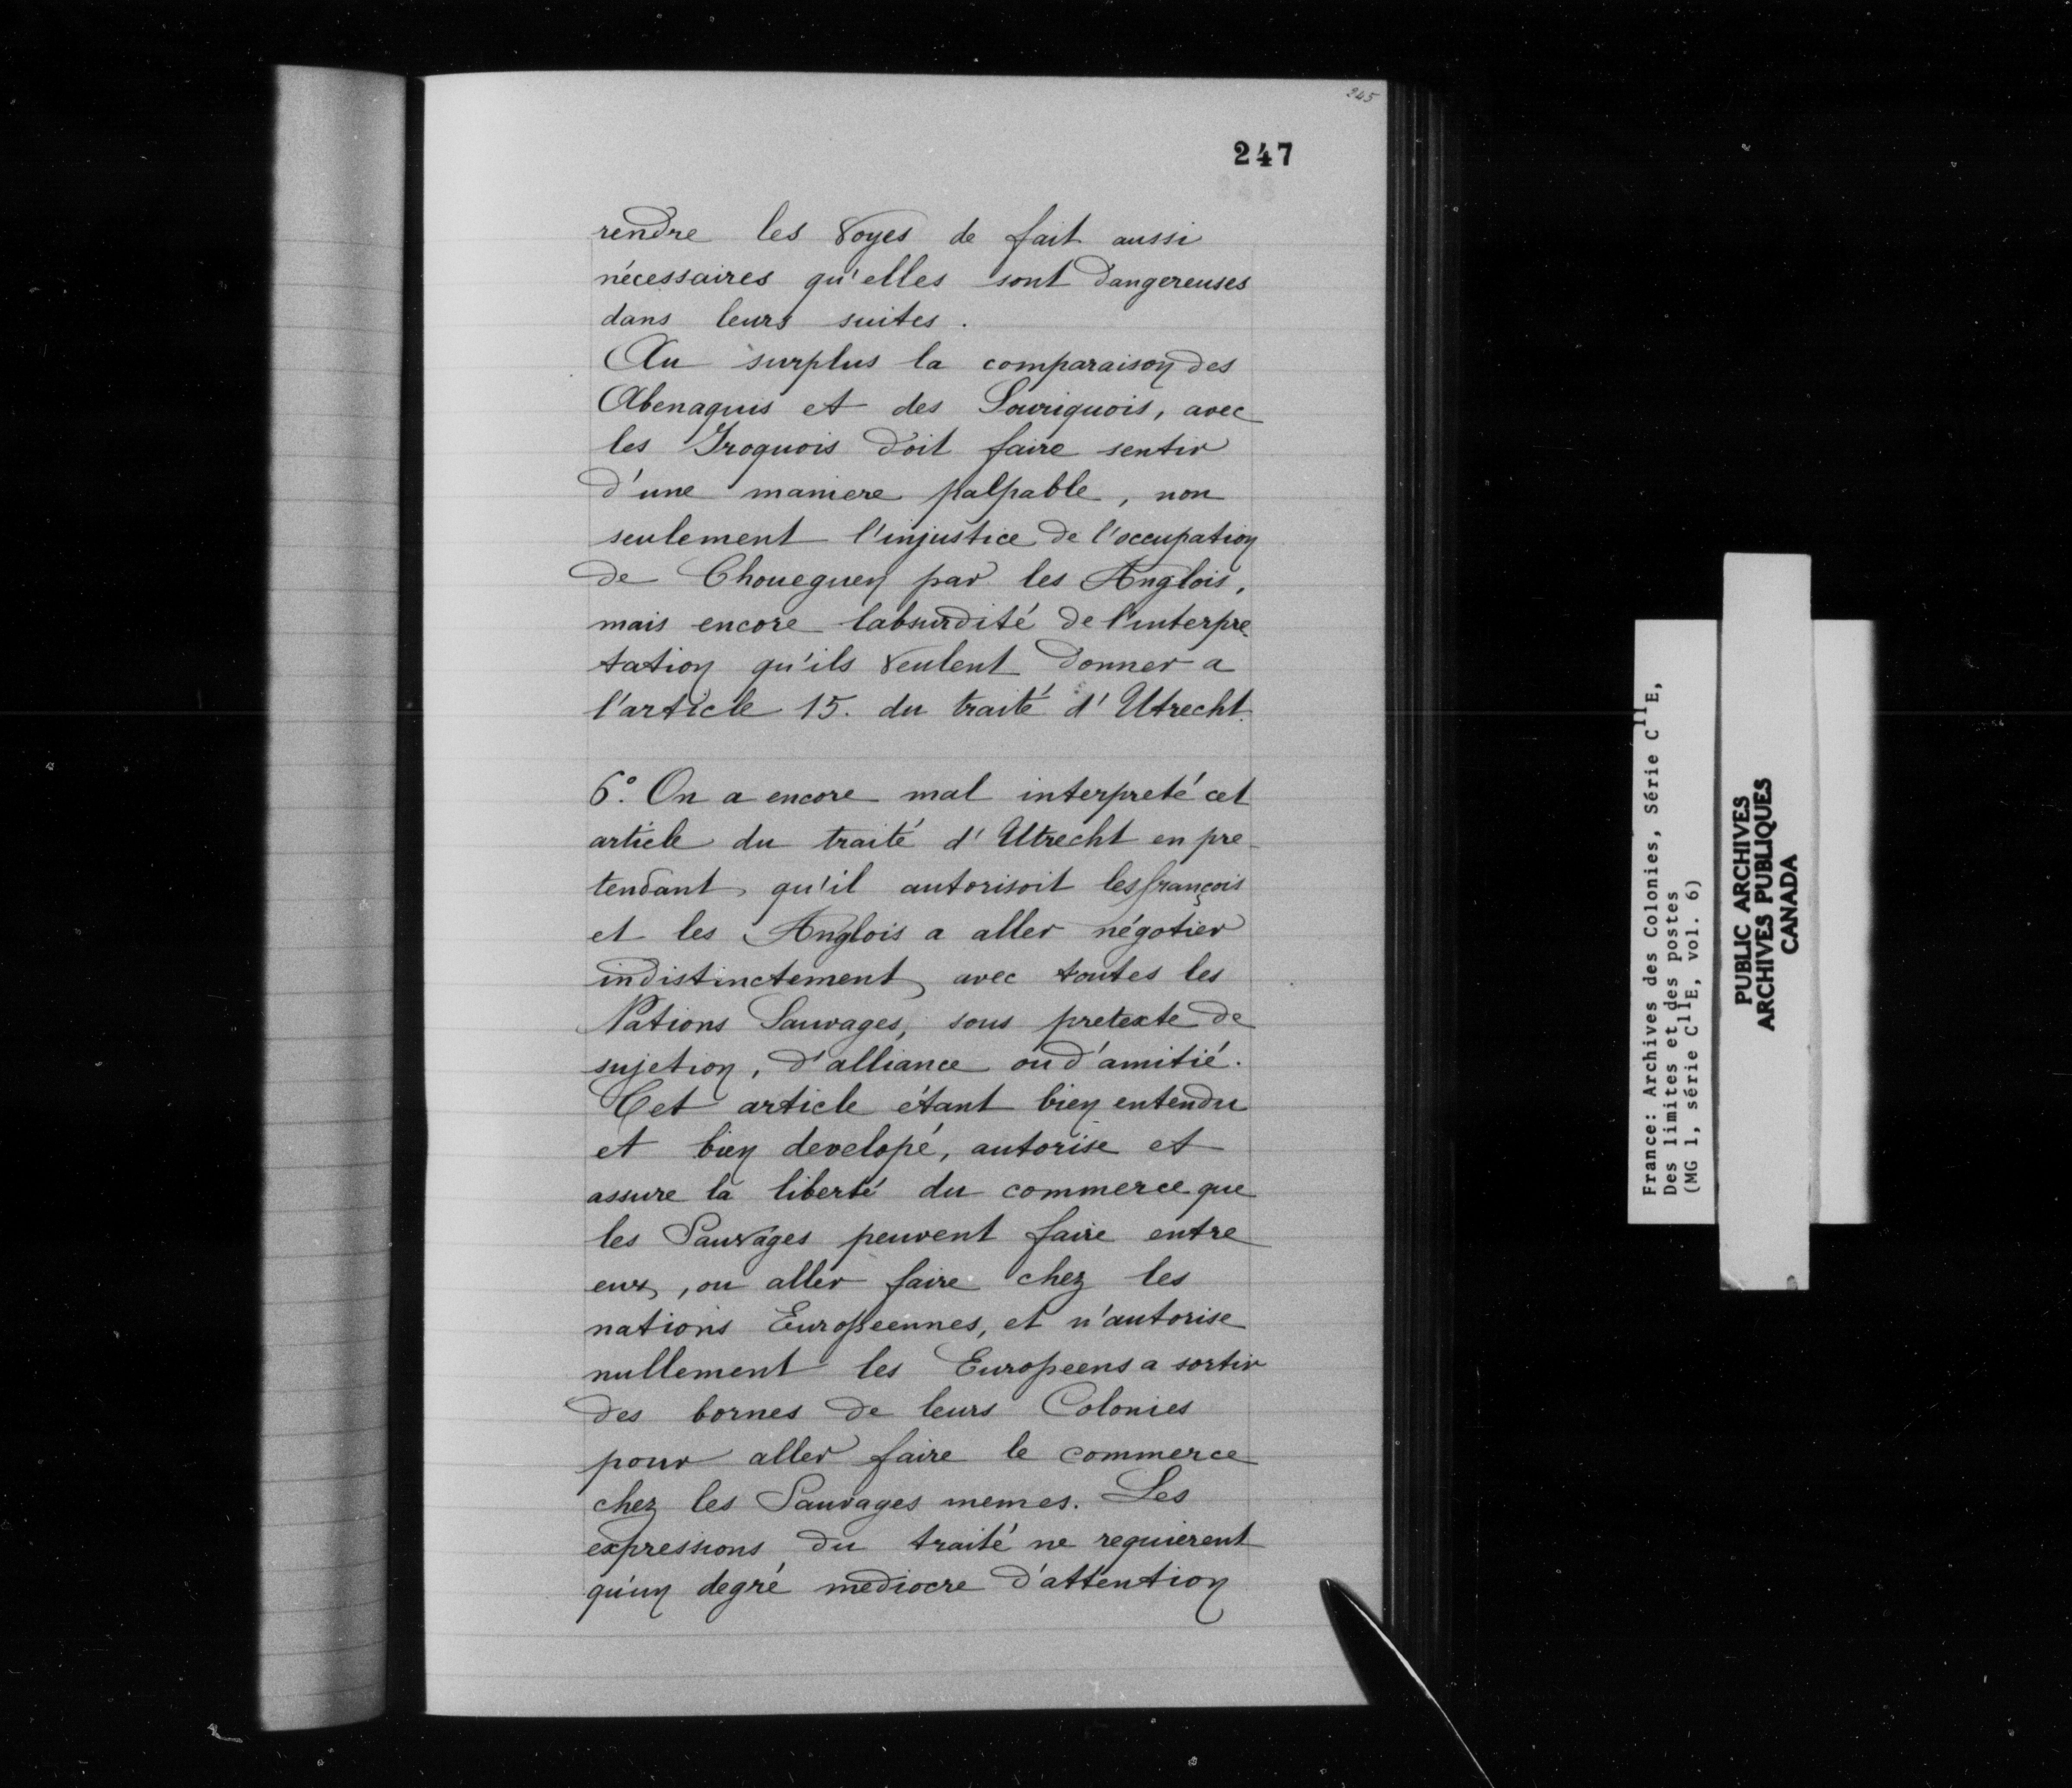 245
247
rendre les voyes de fait aussi
nécessaires qu'elles sont dangereuses
dans leurs suites.
Au surplus la comparaison des
Abenaquis et des Souriquois, avec
les Iroquois doit faire sentir
d'une maniere palpable, non
seulement l'injustice de l'occupation
de Choueguen par les Anglois,
mais encore labsurdité de l'interpre-
tation qu'ils veulent donner a
l'article 15. du traité d'Utrecht.
6°. On a encore mal interpreté cet
article du traité d'Utrecht en pre-
tendant qu'il autorisoit les françois
et les Anglois a aller négotier
indistinctement avec toutes les
Nations Sauvages, sous pretexte de
sujetion, d'alliance ou d'amitié.
Cet article étant bien entendu
et bien developé, autorise et
assure la liberté du commerce que
les Sauvages peuvent faire entre
eux, ou aller faire chez les
nations Europeennes, et n'autorise
nullement les Europeens a sortir
des bornes de leurs Colonies
pour aller faire le commerce
chez les Sauvages memes. Les
expressions du traité ne requierent
qu'un degré mediocre d'attention
France: Archives des Colonies, Série C11E,
Des limites et des postes
(MG 1, série C11E, vol. 6)
PUBLIC ARCHIVES
ARCHIVES PUBLIQUES
CANADA